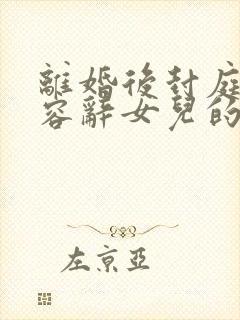 離婚後封庭
容辭女兒的
左京亞